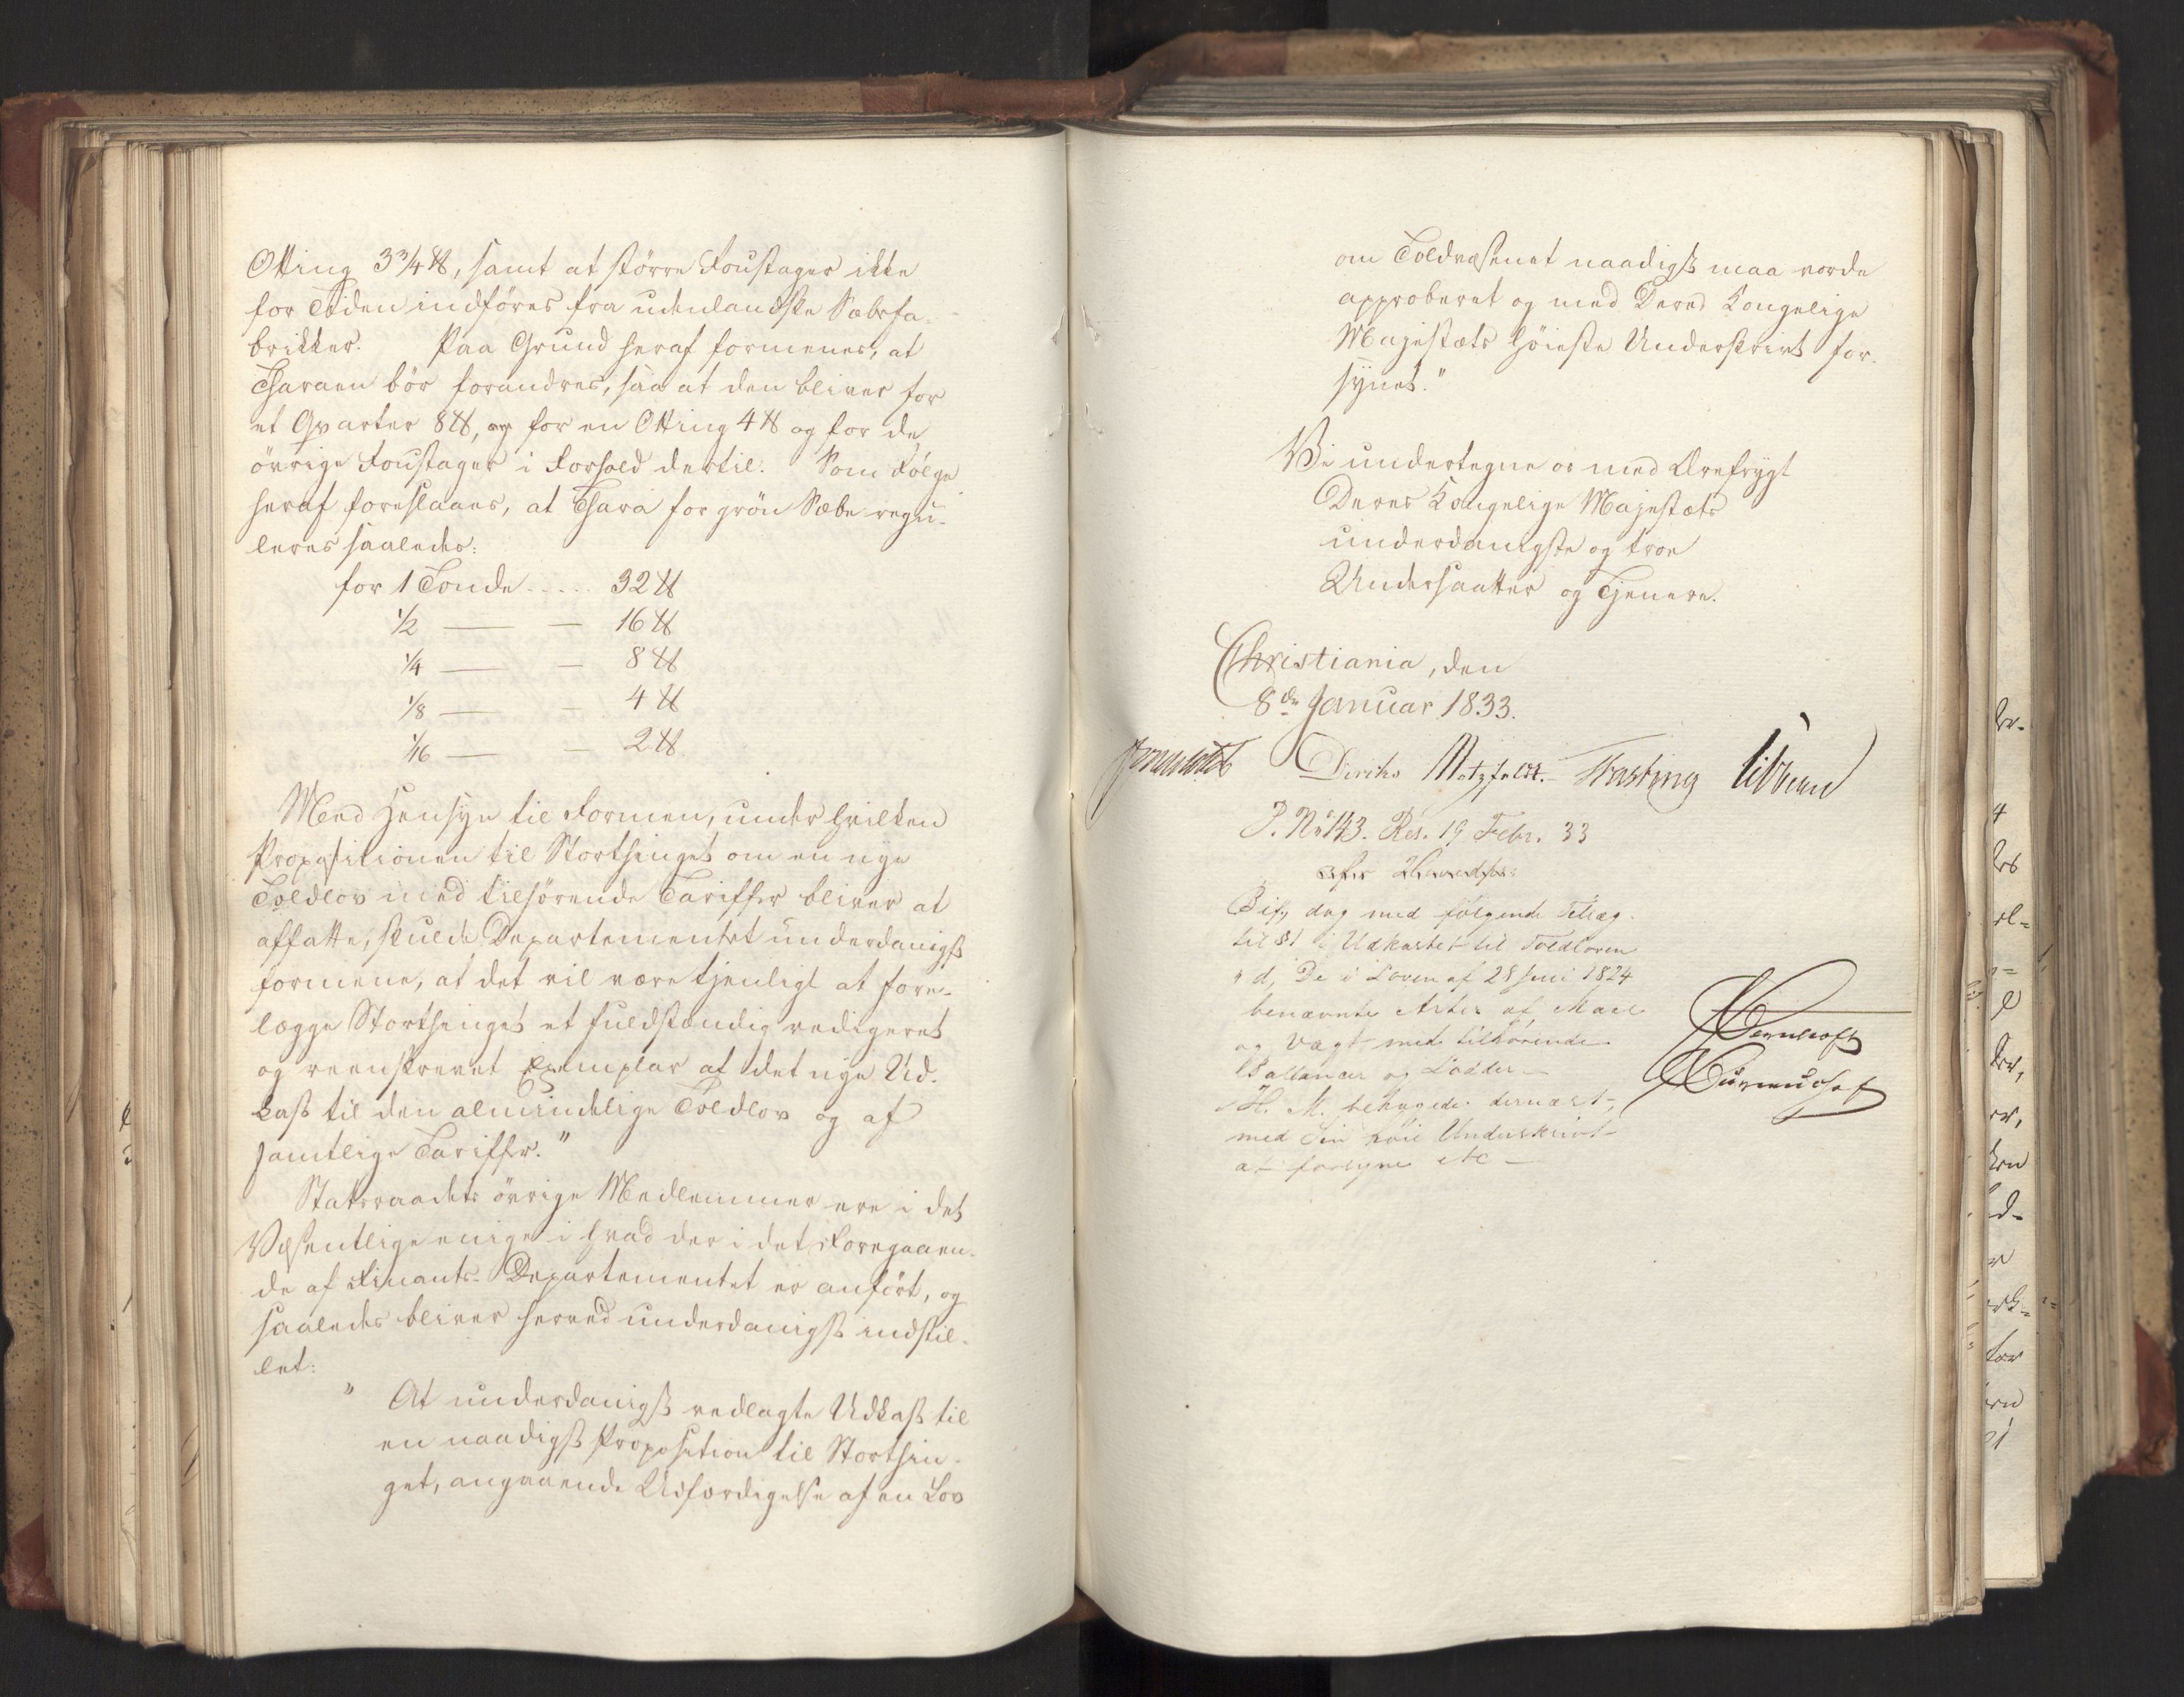 Otting 3 3/4 ℔, samt at större Foustager ikke
for Tiden indföres fra udenlandske Sæbefa-
brikker. Paa Grund heraf formenes, at
Tharaen bör forandres, saa at den bliver for
et Qvarter 8 ℔, og for en Otting 4 ℔ og for de
övrige Foustager i Forhold dertil. Som Fölge
heraf foreslaaes, at Thara for grön Sæbe regu-
leres saaledes:
for 1 Tønde ..... 32 ℔
1/2 — — 16 ℔
1/4 — — 8 ℔
1/8 — — 4 ℔
1/16 — — 2 ℔
Med Hensyn til Formen, under hvilken
Propositionen til Storthinget om en nye
Toldlov med tilhörende Tariffer bliver at
affatte, skulde Departementet underdanigst
formene, at det vil være tjenligt at fore-
lægge Storthinget et fuldstændig redigeret
og reenskrevet Exemplar af det nye Ud-
kast til den almindelige Toldlov og af
samtlige Tariffer."
Statsraadets övrige Medlemmer ere i det
Væsentlige enige i hvad der i det Foregaaen-
de af Finants-Departementet er anfört, og
saaledes bliver herved underdanigst indstil-
let:
" At underdanigst vedlagte Udkast til
en naadigst Proposition til Storthin-
get, angaaende Udfærdigelse af en Lov
om Toldvæsenet naadigst maa vorde
approberet og med Deres Kongelige
Majestæts höieste Underskrivt for-
synet."
Vi undertegne os med Ærefrygt
Deres Kongelige Majestæts
underdanigste og troe
Undersaatter og Tjenere.
Christiania, den
8de Januar 1833.
Diriks Motzfeldt. Fasting Vibe
P. No 143. Res. 19 Febr. 33
Bif., dog med følgende Tillæg
til § 1 i Udkastet til Toldloven
" d, De i Loven af 28 Juni 1824
benævnte Arter af Maal
og Vægt med tilhørende
Ballancer og Lodder —
H. M. behagede dernæst
med Sin høie Underskrivt
at forsyne etc —